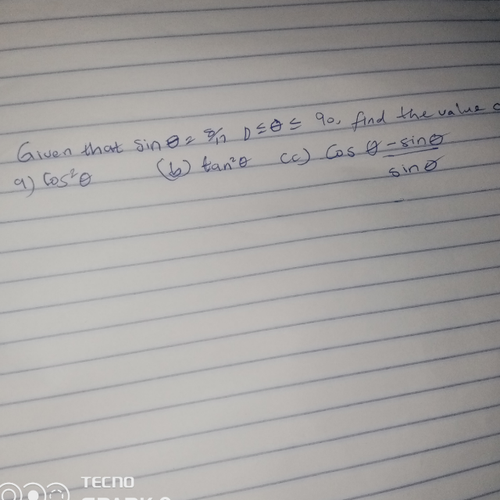 Given that sin θ = 8/17, 0 ≤ θ ≤ 90, find the value o
a) Cos²θ (b) tan²θ (c) Cos θ - sinθ / sinθ
TECNO